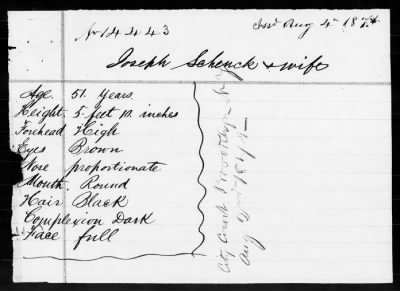 No 14443
Issd Aug 4th 187
Joseph Schenck & wife
Age. 51. Years.
Height. 5 feet 10. inches
Forehead High
Eyes Brown
Nose proportionate
Mouth. Round
Hair Black
Complexion Dark
Face full
City Court Brooklyn N.Y.
Aug 2nd